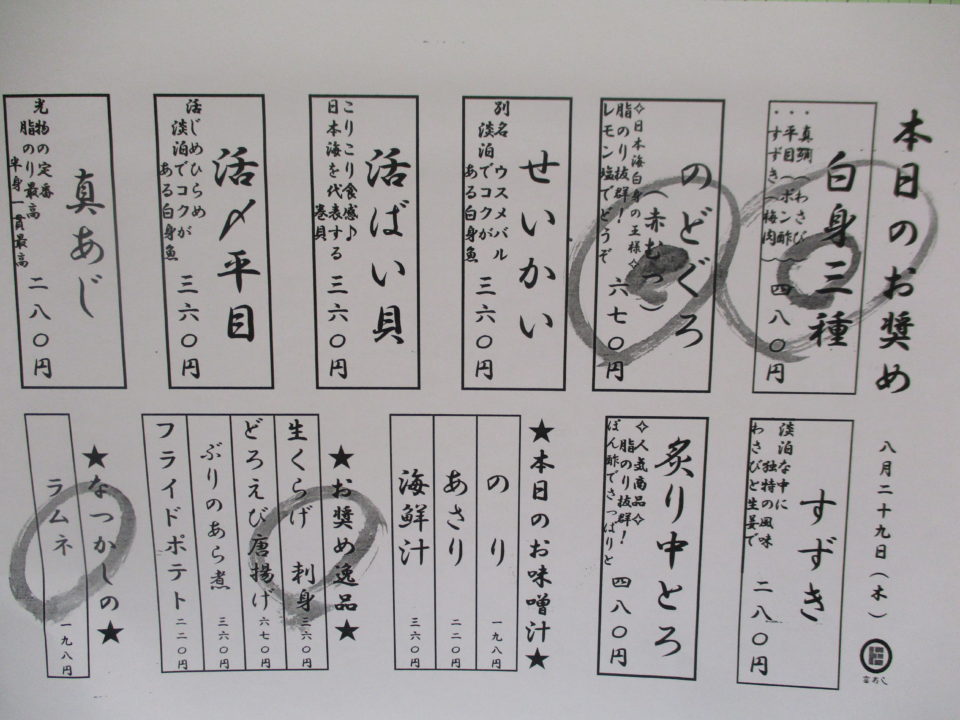 本日のお奨め
八月二十九日（木）
白身三種
・真鯛（わさび）
・平目（ポン酢）
・すずき（梅肉）
四八〇円
のどぐろ
（赤むつ）
✧日本海白身の王様✧
脂のり抜群！
レモン塩でどうぞ
六七〇円
せいかい
別名 ウスメバル
淡泊でコクが
ある白身魚
三六〇円
活ばい貝
こりこり食感♪
日本海を代表する
巻貝
三六〇円
活〆平目
活じめひらめ
淡泊でコクが
ある白身魚
三六〇円
真あじ
光物の定番
脂のり最高
半身一貫最高
二八〇円
すずき
淡泊な中に
独特の風味
わさびと生姜で
二八〇円
炙り中とろ
✧人気商品✧
脂のり抜群！
ぽん酢でさっぱりと
四八〇円
★本日のお味噌汁★
のり 一九八円
あさり 二二〇円
海鮮汁 三六〇円
★お奨め逸品★
生くらげ 刺身 三六〇円
どろえび唐揚げ 六七〇円
ぶりのあら煮 三六〇円
フライドポテト 二二〇円
★なつかしの★
ラムネ 一九八円